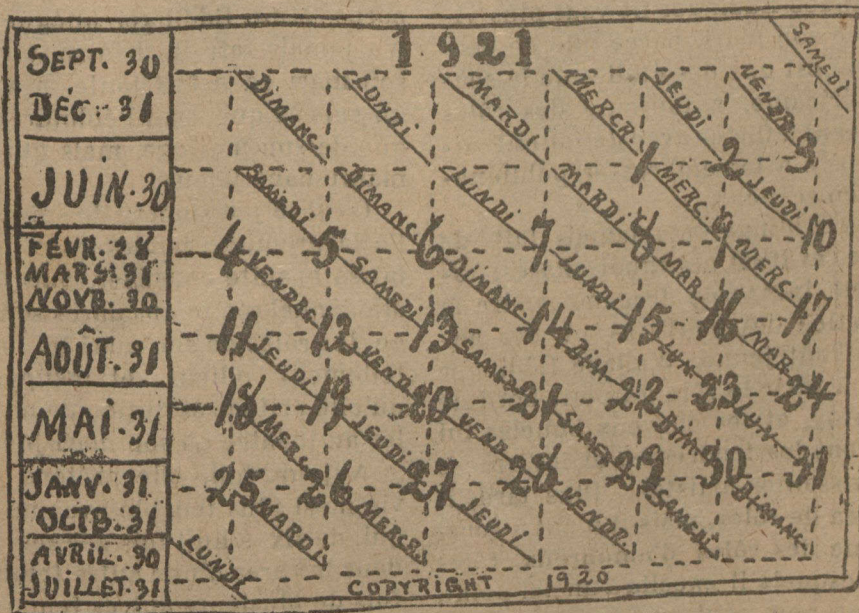 1921
SEPT. 30
DÉC. 31
JUIN. 30
FÉVR. 28
MARS. 31
NOVB. 30
AOÛT. 31
MAI. 31
JANV. 31
OCTB. 31
AVRIL. 30
JUILLET. 31
DIMANC. LUNDI MARDI MERCR. JEUDI VENDR. SAMEDI
1 2 3
SAMEDI DIMANC. LUNDI MARDI MERC. JEUDI
4 5 6 7 8 9 10
VENDRE SAMEDI DIMANC. LUNDI MAR. MERC.
11 12 13 14 15 16 17
JEUDI VEND SAMED DIM LUN MAR.
18 19 20 21 22 23 24
MERC. JEUDI VEND SAMED DIM. LUN.
25 26 27 28 29 30 31
LUNDI MARDI MERCR. JEUDI VENDR. SAMEDI DIMANC.
COPYRIGHT 1920